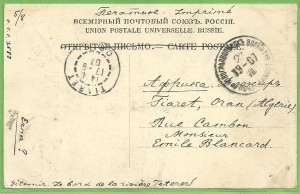 5/8
Печатное. Imprimé
ВСЕМІРНЫЙ ПОЧТОВЫЙ СОЮЗЪ. РОССІЯ.
UNION POSTALE UNIVERSELLE. RUSSIE.
ОТКРЫТОЕ ПИСЬМО. — CARTE POSTALE
TIARET
Африка
Tiaret, Oran (Algérie)
Rue Cambon
Monsieur
Emile Blancard.
Le bord de la rivière Teterev